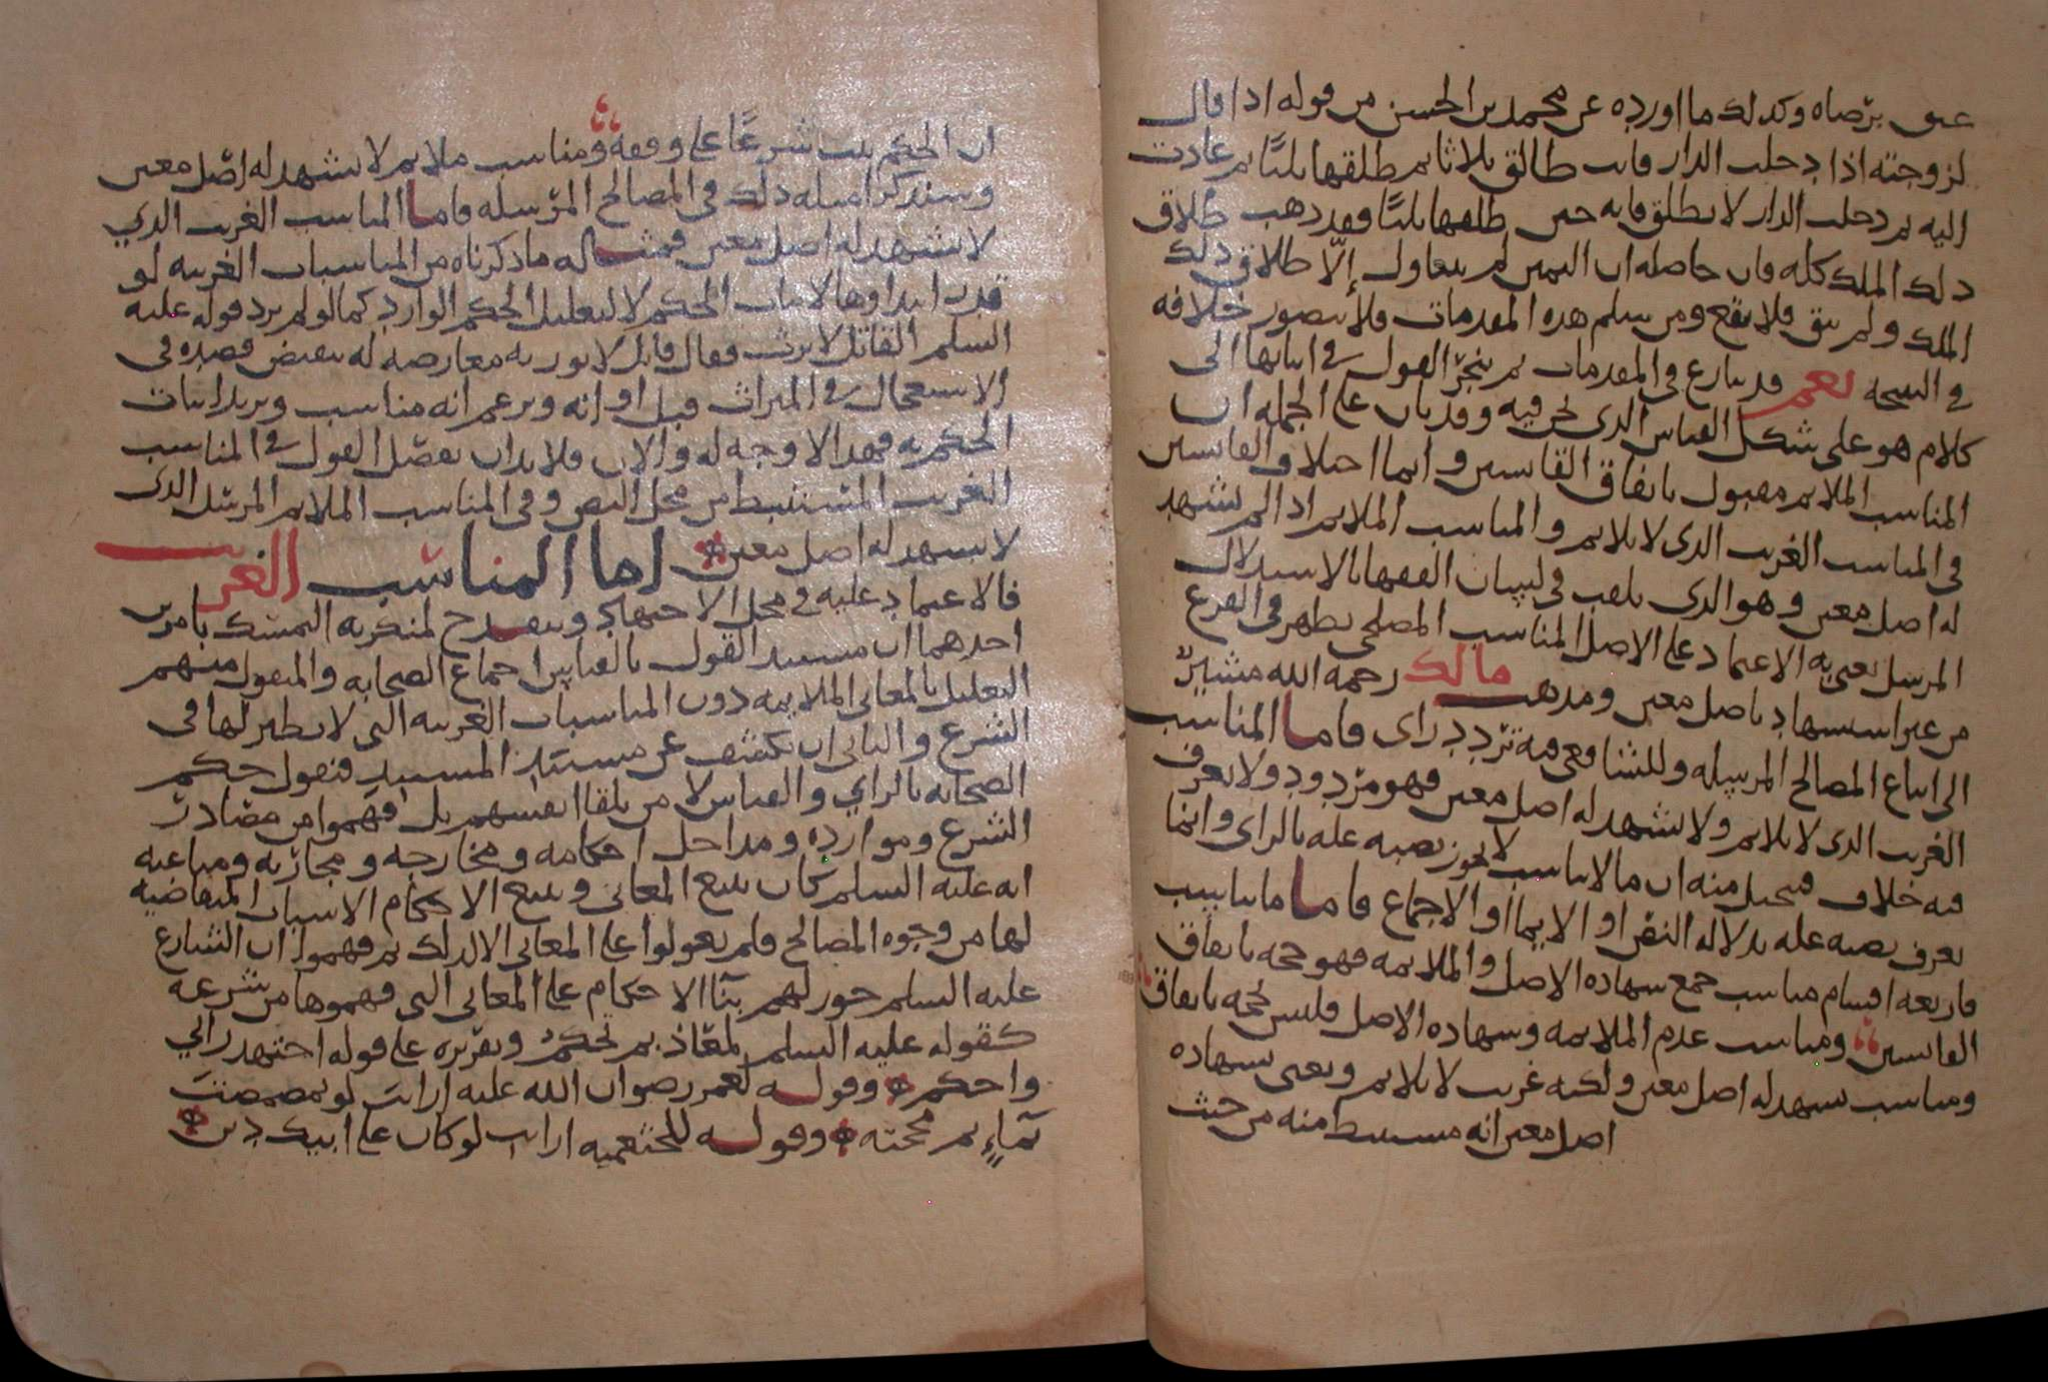 عتق برضاه وكذلك ما اورده عن محمد بن الحسن من قوله اذا قال
لزوجته اذا دخلت الدار فانت طالق ثلاثا ثم طلقها ثلثًا ثم عادت
اليه ثم دخلت الدار لا تطلق فانه حين طلقها ثلثًا فقد ذهب طلاق
ذلك الملك كله فان حاصله ان اليمين لم يتناول إلّا طلاق ذلك
الملك ولم يبق فلا يقع ومن سلم هذه المقدمات فلا يتصور خلافه
في النتيجة نعم قد ينازع في المقدمات ثم ينجرّ القول في اثباتها الى
كلام هو على شكل القياس الذي نحن فيه وقد بان على الجملة ان
المناسب الملايم مقبول باتفاق القايسين وانما اختلاف القايسين
في المناسب الغريب الذي لا يلايم والمناسب الملايم اذا لم يشهد
له اصل معين وهو الذي يلقب في لسان الفقها بالاستدلال
المرسل نعني به الاعتماد على الاصل المناسب المصلحي يظهر في الفرع
من غير استشهاد باصل معين ومذهب مالك رحمه الله مشير
الى اتباع المصالح المرسله وللشافعي فيه تردد راى فاما المناسب
الغريب الذي لا يلايم ولا يشهد له اصل معين فهو مردود ولا نعرف
فيه خلاف فتحصل منه ان ما لا يناسب لا يجوز نصبه علة بالراى وانما
يعرف نصبه علة بدلاله النص او الايما او الاجماع فاما ما يناسب
فاربعه اقسام مناسب جمع شهاده الاصل والملايمه فهو حجه باتفاق
القايسين ومناسب عدم الملايمه وشهاده الاصل فليس بحجه باتفاق
ومناسب يشهد له اصل معين ولكنه غريب لا يلايم ونعني بشهاده
اصل معين انه مستنبط منه من حيث
ان الحكم يثبت شرعًا على وفقه ومناسب ملايم لا يشهد له اصل معين
وسنذكر امثلة ذلك في المصالح المرسله فاما المناسب الغريب الذي
لا يشهد له اصل معين فمثاله ما ذكرناه من المناسبات الغريبه لو
قدر ابتداوها لاثبات الحكم لا لتعليل الحكم الوارد كما لو لم يرد قوله عليه
السلم القاتل لا يرث فقال قايل لا نورثه معارضه له بنقيض قصده في
الاستعجال في الميراث قبل اوانه ويزعم انه مناسب ويريد اثبات
الحكم به فهذا لا وجه له والان فلا بد ان نفصل القول في المناسب
الغريب المستنبط من محل النص وفي المناسب الملايم المرسل الذي
لا يشهد له اصل معين اما المناسب الغريب
فالاعتماد عليه في محل الاجتهاد وينقدح لمنكريه التمسك بامرين
احدهما ان مستند القول بالقياس اجماع الصحابه والمنقول منهم
التعليل بالمعاني الملايمه دون المناسبات الغريبه التي لا نظير لها في
الشرع والثاني ان نكشف عن مستند المستند فنقول حكم
الصحابه بالراي والقياس لا من تلقا انفسهم بل فهموا من مصادر
الشرع وموارده ومداخل احكامه ومخارجه ومجاريه ومباعثه
انه عليه السلم كان يتبع المعاني ويتبع الاحكام الاسباب المتقاضيه
لها من وجوه المصالح فلم يعولوا على المعاني الا لذلك ثم فهموا ان الشارع
عليه السلم جوز لهم بنآ الاحكام على المعاني التي فهموها من شرعه
كقوله عليه السلم لمعاذ بم تحكم وتقريره على قوله اجتهد رايي
واحكم وقوله لعمر رضوان الله عليه ارايت لو تمضمضت
بمآءٍ ثم مججته وقوله للخثعميه ارايت لو كان على ابيك دين